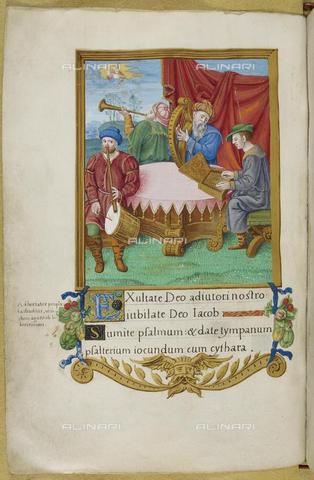 EXultate Deo adiutori nostro
iubilate Deo Iacob
Sumite psalmum & date tympanum
psalterium iocundum cum cythara.
ALINARI
ALINARI
ALINARI
ALINARI
ALINARI
ALINARI
ALINARI
ALINARI